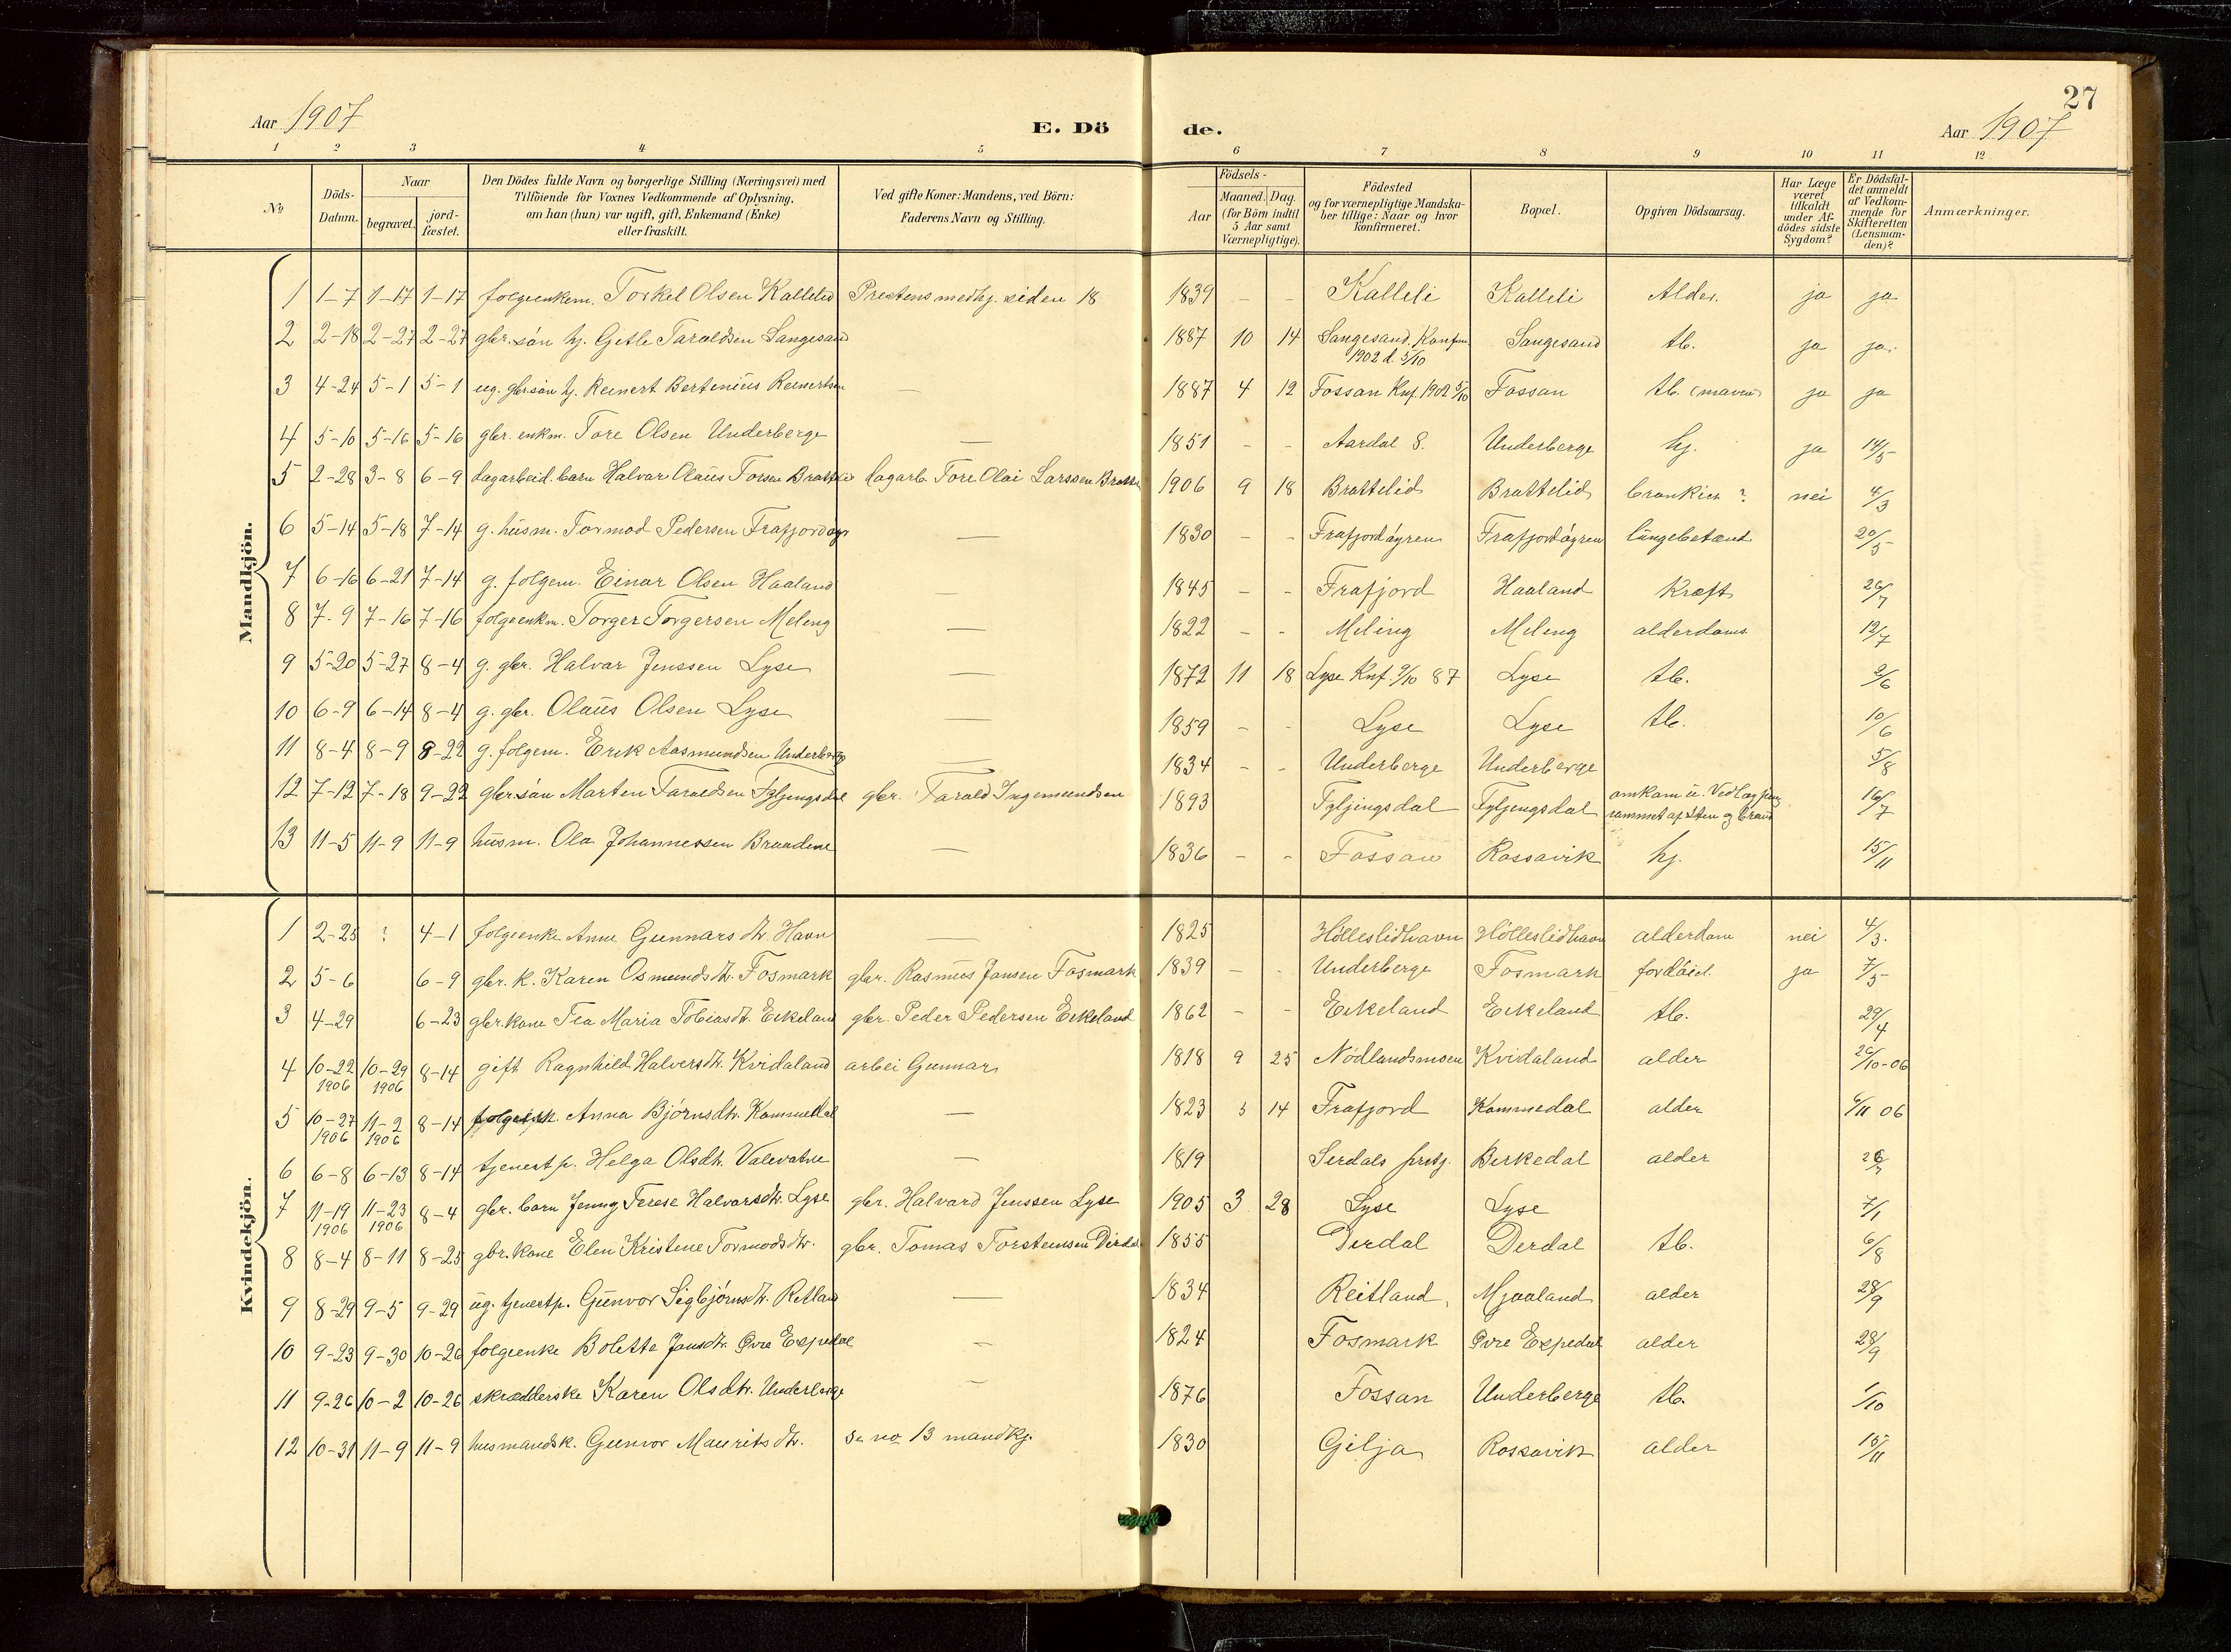 27
Aar 1907 E. Dö de. Aar 1907
1 2 3 4 5 6 7 8 9 10 11 12
No
Döds-Datum.
Naar
begravet. jord-fæstet.
Den Dödes fulde Navn og borgerlige Stilling (Næringsvei) med
Tilföiende for Voxnes Vedkommende af Oplysning,
om han (hun) var ugift, gift, Enkemand (Enke)
eller fraskilt.
Ved gifte Koner: Mandens, ved Börn:
Faderens Navn og Stilling.
Födsels-
Aar Maaned. Dag.
(for Börn indtil
5 Aar samt
Værnepligtige).
Födested
og for værnepligtige Mandska-
ber tillige: Naar og hvor
konfirmeret.
Bopæl.
Opgiven Dödsaarsag.
Har Læge
været
tilkaldt
under Af-
dödes sidste
Sygdom?
Er Dödsfal-
det anmeldt
af Vedkom-
mende for
Skifteretten
(Lensman-
den)?
Anmærkninger.
Mandkjön.
1 1-7 1-17 1-17 folgeenkem. Torkel Olsen Kallelid Prestens medhj. siden 18 1839 - - Kalleli Kalleli Alder. ja ja
2 2-18 2-27 2-27 gbr. søn hj. Gitle Taraldsen Sangesand 1887 10 14 Sangesand. Konfm. 1902 d. 5/10 Sangesand tb. ja ja.
3 4-24 5-1 5-1 ug. gbr.søn hj. Reinert Bertenius Reinertsen — 1887 4 12 Fossan Knf. 1902 5/10 Fossan tb. ja ja
4 5-10 5-16 5-16 gbr. enkm. Tore Olsen Underberge — 1851 - - Aardal S. Underberge hj. ja 14/5
5 2-28 3-8 6-9 dagarbeid. barn Halvar Olaus Torsen dagarb. Tore Olai Larssen 1906 9 18 Brattelid Brattelid bronkien ? nei 4/3
6 5-14 5-18 7-14 g. husm. Tormod Pedersen — 1830 - - Frafjordøyren Frafjordøyren lungebetænd 20/5
7 6-16 6-21 7-14 g. folgem. Einar Olsen Haaland — 1845 - - Frafjord Haaland Kræft 26/7
8 7-9 7-16 7-16 folgeenkm. Torger Torgersen Meleng — 1822 - - Meling Meleng alderdoms 12/7
9 5-20 5-27 8-4 g. gbr. Halvar Jenssen Lyse — 1872 11 18 Lyse Knf. 9/10 87 Lyse tb. 2/6
10 6-9 6-14 8-4 g. gbr. Olaus Olsen Lyse — 1859 - - Lyse Lyse tb. 10/6
11 8-4 8-9 8-22 g. folgem. Erik Aasmundsen Underberge — 1834 - - Underberge Underberge 5/8
12 7-12 7-18 9-22 gbr.søn Marten Taraldsen Fyljengsdal gbr. Tarald Ingemundsen 1893 Fyljingsdal Fyljengsdal omkom u. 16/7
13 11-5 11-9 11-9 husm. Ola Johannessen Braadene — 1836 - - Fossan Rossavik hj. 15/11
Kvindekjön.
1 2-25 ? 4-1 folgeenke Anne Gunnars dtr. Havn — 1825 Hölleslidhavn Hölleslidhavn alderdom nei 4/3.
2 5-6 6-9 gbr. k. Karen Osmunds dtr. Fosmark gbr. Rasmus Jansen Fosmark 1839 - - Underberge Fosmark fordøiel. ja 7/5
3 4-29 6-23 gbr.kone Tea Maria Tobiasdtr. Eikeland gbr. Peder Pedersen Eikeland 1862 - - Eikeland Eikeland tb. 29/4
4 10-22 1906 10-29 1906 8-14 gift Ragnhild Halversdtr. Kvidaland arbei Gunnar 1818 9 25 Nödlandsmoen Kvidaland alder 26/10-06
5 10-27 1906 11-2 1906 8-14 Anna Bjørnsdtr. Kommedal — 1823 5 14 Frafjord Kommedal alder 6/11 06
6 6-8 6-13 8-14 tjenest p. Helga Olsdtr. Valevatne — 1819 Serdals prstj. Birkedal alder
7 11-19 1906 11-23 1906 8-4 gbr. barn Jenny Terese Halvarsdtr. Lyse gbr. Halvard Jenssen Lyse 1905 3 28 Lyse Lyse 7/1
8 8-4 8-11 8-25 gbr.kone Elen Kristene Tormodsdtr. gbr. Tomas Torsteinsen Dirdal 1855 Dirdal Derdal tb. 6/8
9 8-29 9-5 9-29 ug. tjenestp. Gunvor Sigbjørnsdtr. Retland — 1834 Reitland Mjaaland alder 28/9
10 9-23 9-30 10-26 folgeenke Bolette Jansdtr. Øvre Espedal — 1824 Fosmark Øvre Espedal alder 28/9
11 9-26 10-2 10-26 skrædderske Karen Olsdtr. Underberge — 1876 Fossan Underberge tb. 1/10
12 10-31 11-9 11-9 husmandsk. Gunvor Maurits dtr. se no 13 mandkj. 1830 Gilja Rossavik alder 15/11